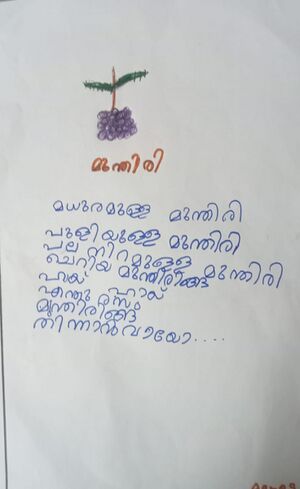 മുന്തിരി
മധുരമുള്ള മുന്തിരി
പുളിയുള്ള മുന്തിരി
പല നിറമുള്ള മുന്തിരി
ചെറിയ മുന്തിരിങ്ങ
ഹായ് ഹായ്
എന്തു രസം
മുന്തിരിങ്ങ
തിന്നാൻ വായോ....